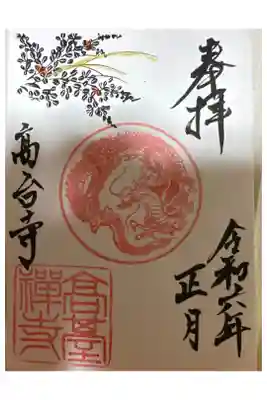 奉拝
令和六年
正月
高台寺
高臺
禅寺